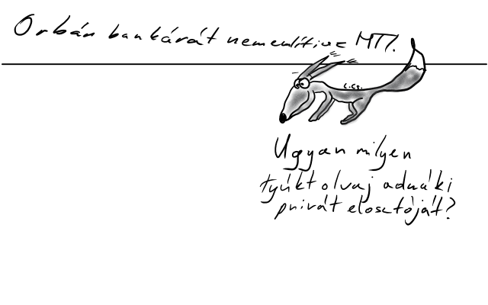 Orbán bankárát nem említive MTI.
Ugyan milyen
tyúktolvaj adná ki
privát elosztóját?